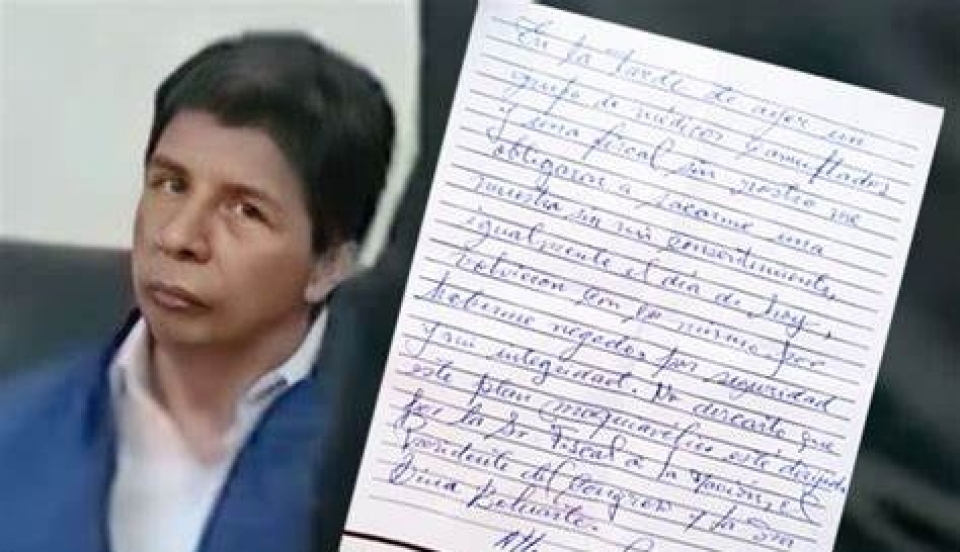 En la tarde de ayer un
grupo de médicos camuflados
y una fiscal sin rostro me
obligaron a sacarme una
muestra sin mi consentimiento,
igualmente el día de hoy,
volvieron con lo mismo por
haberme negado, por seguridad
y mi integridad. No descarto que
este plan maquiavélico esté dirigido
por la Sr Fiscal a la nación, el
Pendente del Congreso y la Sra
Dina Boluarte.